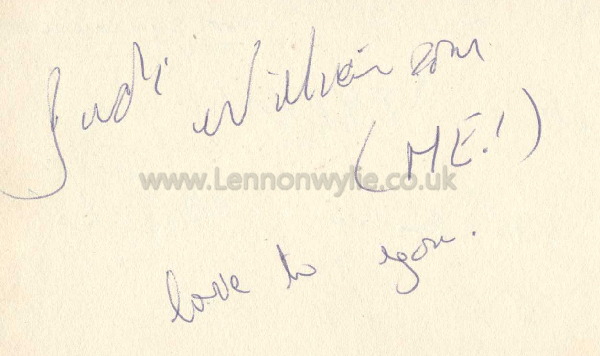 Judi Williamson
(ME!)
www.Lennonwylie.co.uk
love to you.